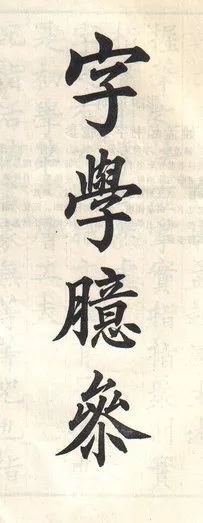 字學臆參